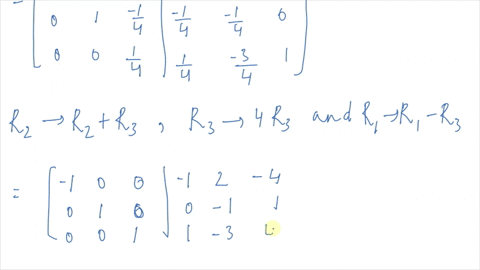 =
0 1 -1/4 | -1/4 -1/4 0
0 0 1/4 | 1/4 -3/4 1
R2 → R2 + R3 , R3 → 4 R3 and R1 → R1 - R3
= [ -1 0 0 | -1 2 -4
0 1 0 | 0 -1 1
0 0 1 | 1 -3